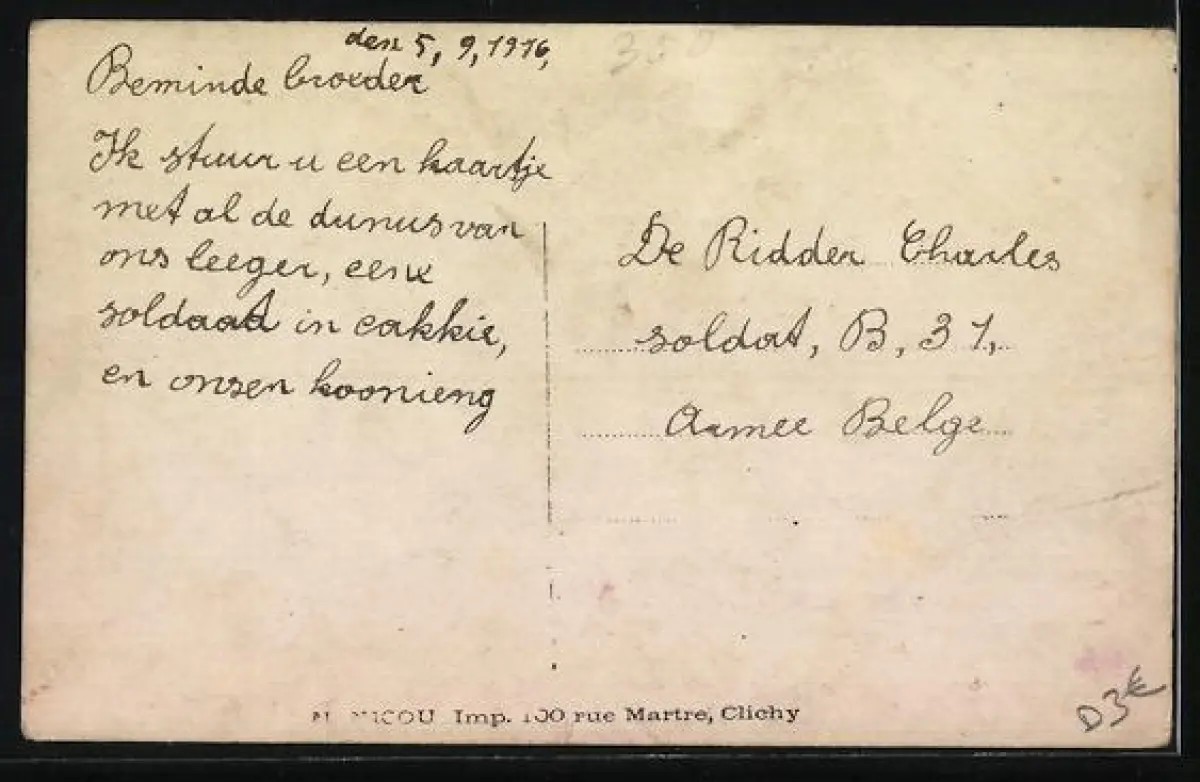 den 5, 9, 1916,
Beminde broeder
Ik stuur u een kaartje
met al de dunus van
ons leeger, eene
soldaad in cakkie,
en onsen koonieng
De Ridder Charles
soldat, B, 31,
Armee Belge
Imp. 100 rue Martre, Clichy
D3€